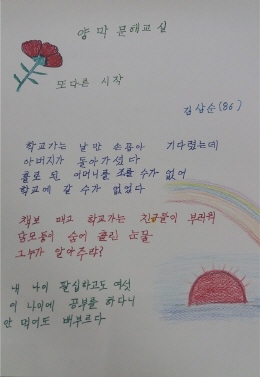 양막 문해교실
또다른 시작
김삼순(86)
학교가는 날만 손꼽아 기다렸는데
아버지가 돌아가셨다
홀로 된 어머니를 조를 수가 없어
학교에 갈 수가 없었다
책보 매고 학교가는 친구들이 부러워
담모퉁이 숨어 흘린 눈물
그누가 알아주랴?
내 나이 팔십하고도 여섯
이 나이에 공부를 하다니
안 먹어도 배부르다